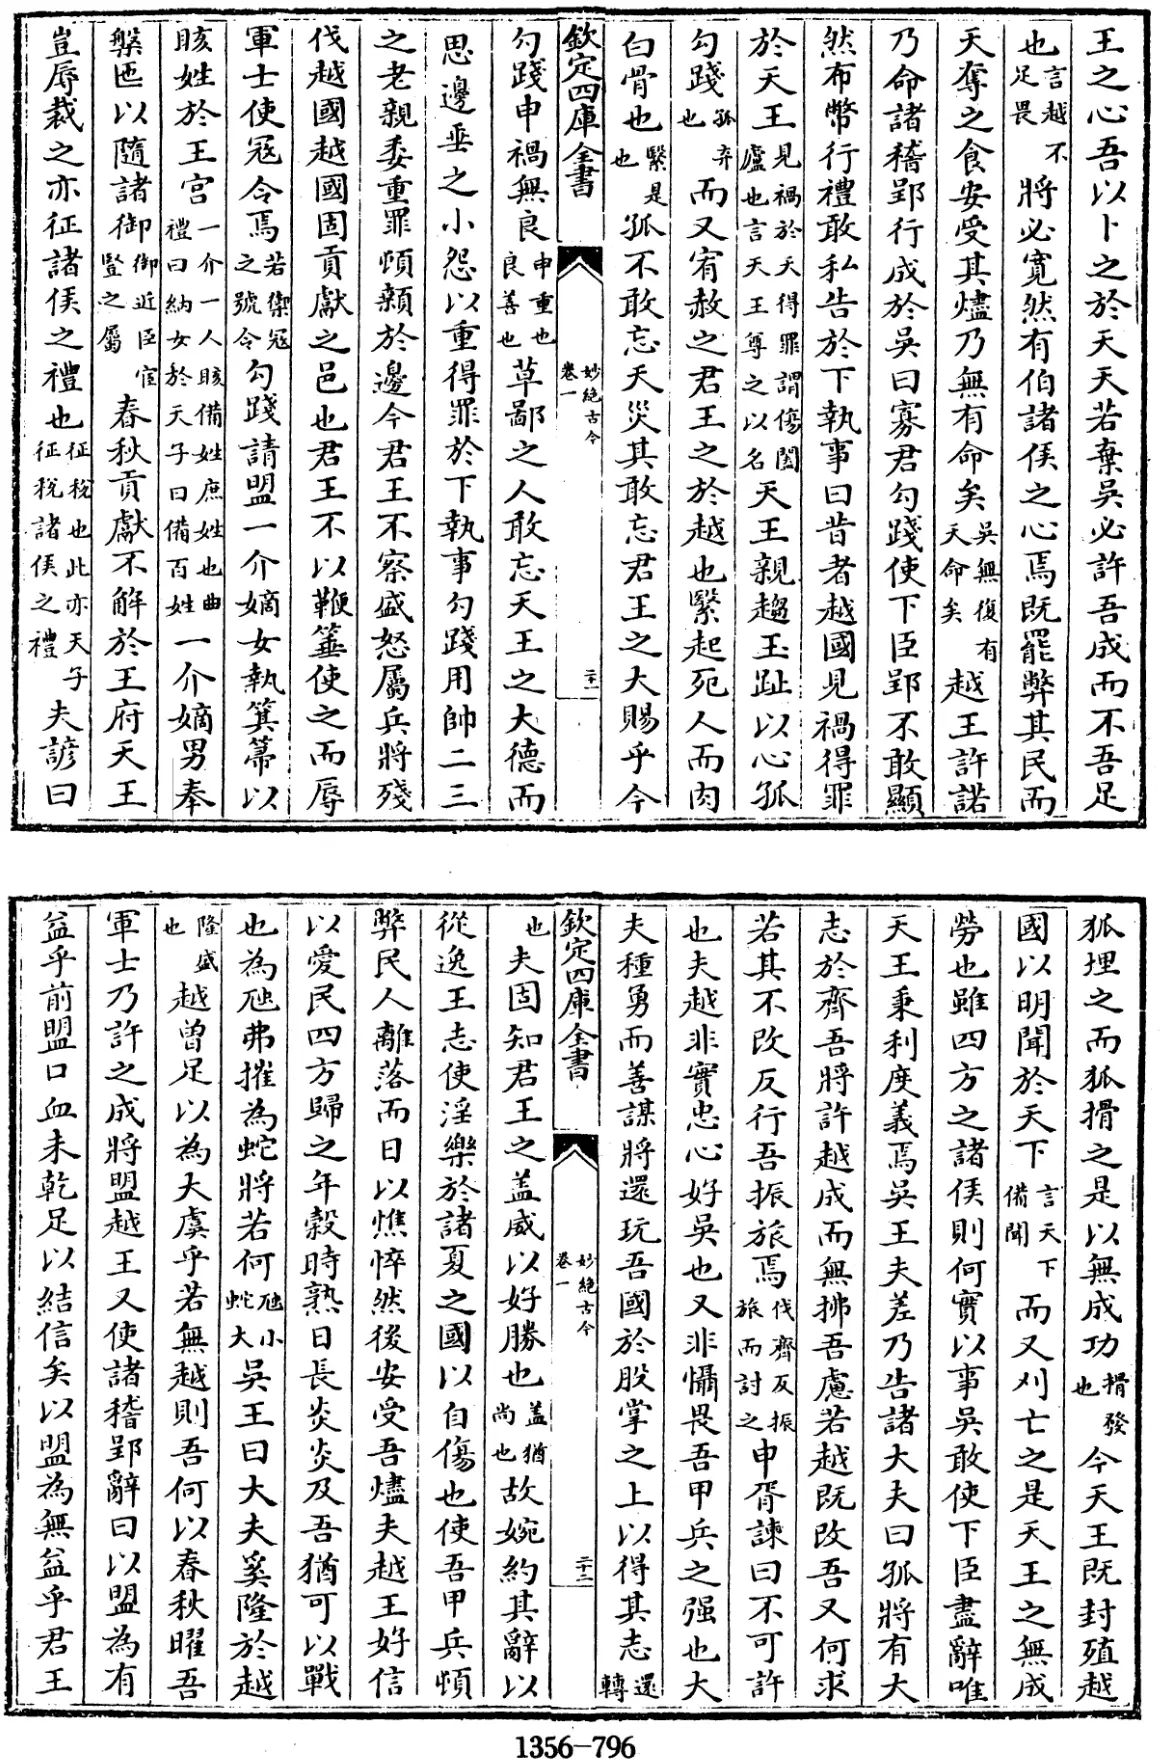 王之心吾以卜之於天天若棄吳必許吾成而不吾足
也言越不足畏將必寛然有伯諸侯之心焉既罷弊其民而
天奪之食安受其燼乃無有命矣吳無復有天命矣越王許諾
乃命諸稽郢行成於吳曰寡君勾踐使下臣郢不敢顯
然布幣行禮敢私告於下執事曰昔者越國見禍得罪
於天王見禍於天得罪謂傷闔廬也言天王尊之以名天王親趨玉趾以心孤
勾踐孤棄也而又宥赦之君王之於越也繄起死人而肉
白骨也繄是也孤不敢忘天災其敢忘君王之大賜乎今
欽定四庫全書
妙絶古今
卷一
二十一
勾踐申禍無良申重也良善也草鄙之人敢忘天王之大德而
思邊垂之小怨以重得罪於下執事勾踐用帥二三
之老親委重罪頓顙於邊今君王不察盛怒屬兵將殘
伐越國越國固貢獻之邑也君王不以鞭箠使之而辱
軍士使寇令焉若禦寇之號令勾踐請盟一介嫡女執箕箒以
晐姓於王宫一介一人晐備姓庶姓也曲禮曰納女於天子曰備百姓一介嫡男奉
槃匜以隨諸御御近臣宦豎之屬春秋貢獻不解於王府天王
豈辱裁之亦征諸侯之禮也征税也此亦天子征税諸侯之禮夫諺曰
狐埋之而狐搰之是以無成功搰發也今天王既封殖越
國以明聞於天下言天下備聞而又刈亡之是天王之無成
勞也雖四方之諸侯則何實以事吳敢使下臣盡辭唯
天王秉利度義焉吳王夫差乃告諸大夫曰孤將有大
志於齊吾將許越成而無拂吾慮若越既改吾又何求
若其不改反行吾振旅焉伐齊反振旅而討之申胥諫曰不可許
也夫越非實忠心好吳也又非懾畏吾甲兵之强也大
夫種勇而善謀將還玩吾國於股掌之上以得其志還轉
欽定四庫全書
妙絶古今
卷一
二十二
也夫固知君王之盖威以好勝也盖猶尚也故婉約其辭以
從逸王志使淫樂於諸夏之國以自傷也使吾甲兵頓
弊民人離落而日以憔悴然後安受吾燼夫越王好信
以愛民四方歸之年穀時熟日長炎炎及吾猶可以戰
也為虺弗摧為蛇將若何虺小蛇大吳王曰大夫奚隆於越
隆盛也越曾足以為大虞乎若無越則吾何以春秋曜吾
軍士乃許之成將盟越王又使諸稽郢辭曰以盟為有
益乎前盟口血未乾足以結信矣以盟為無益乎君王
1356-796